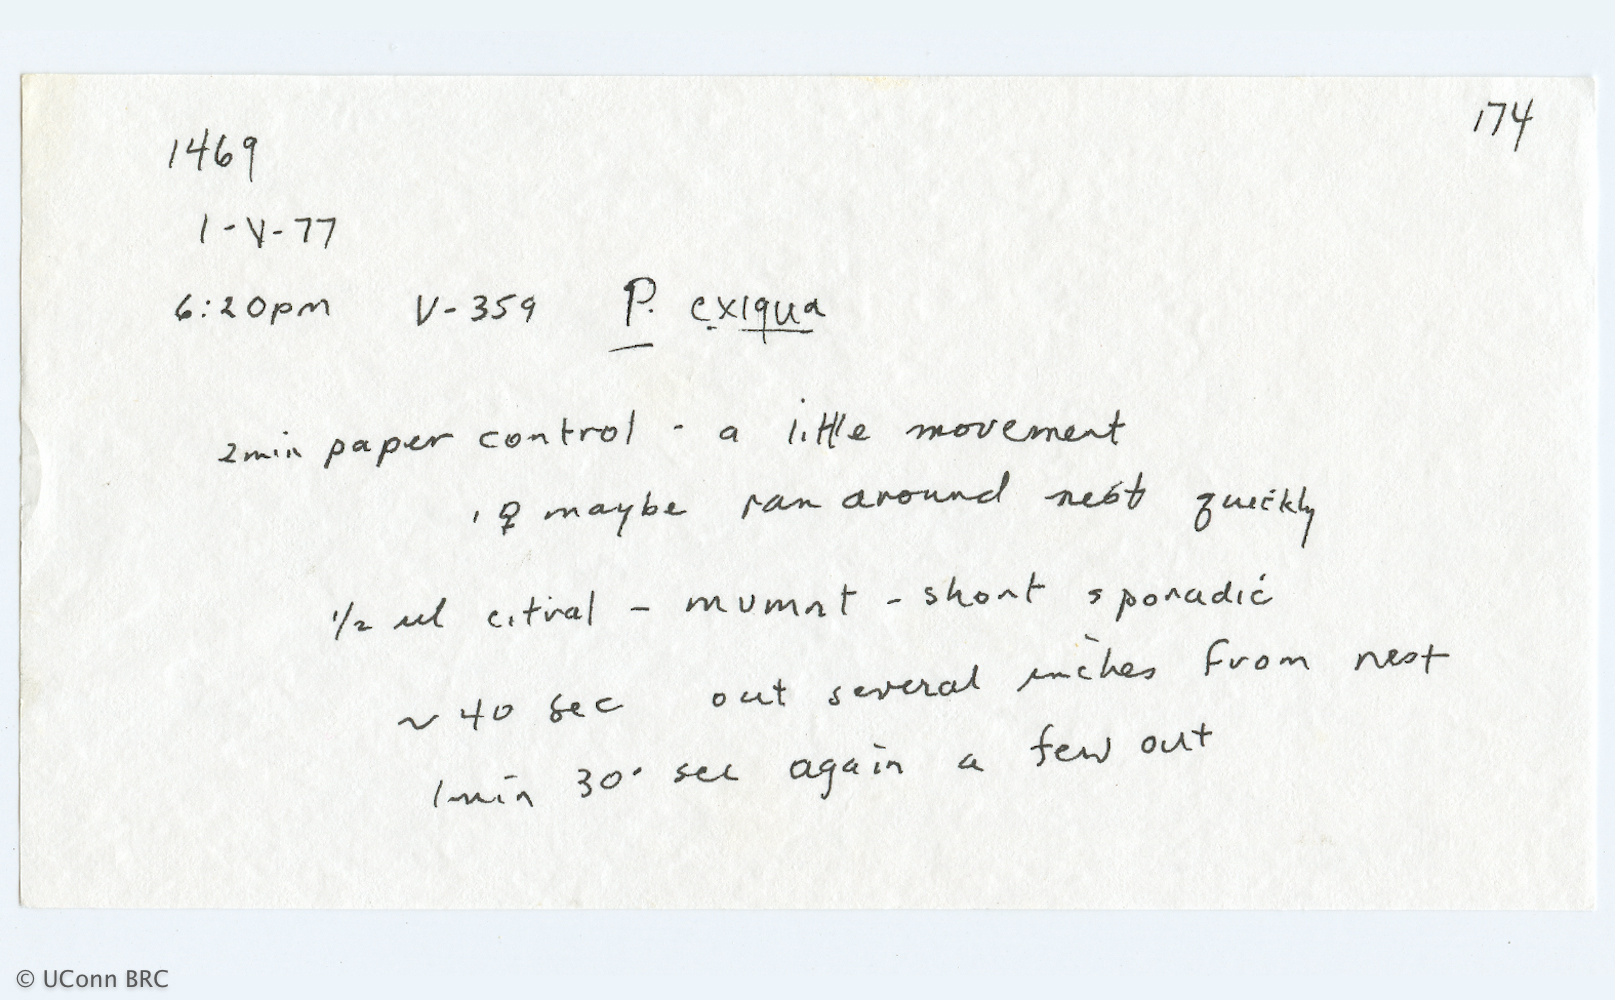 174
1469
1-V-77
6:20pm V-359 P. exiqua
2min paper control - a little movement
1 ♀ maybe ran around nest quickly
1/2 ul citral - mvmnt - short sporadic
~ 40 sec out several inches from nest
1min 30 sec again a few out
© UConn BRC